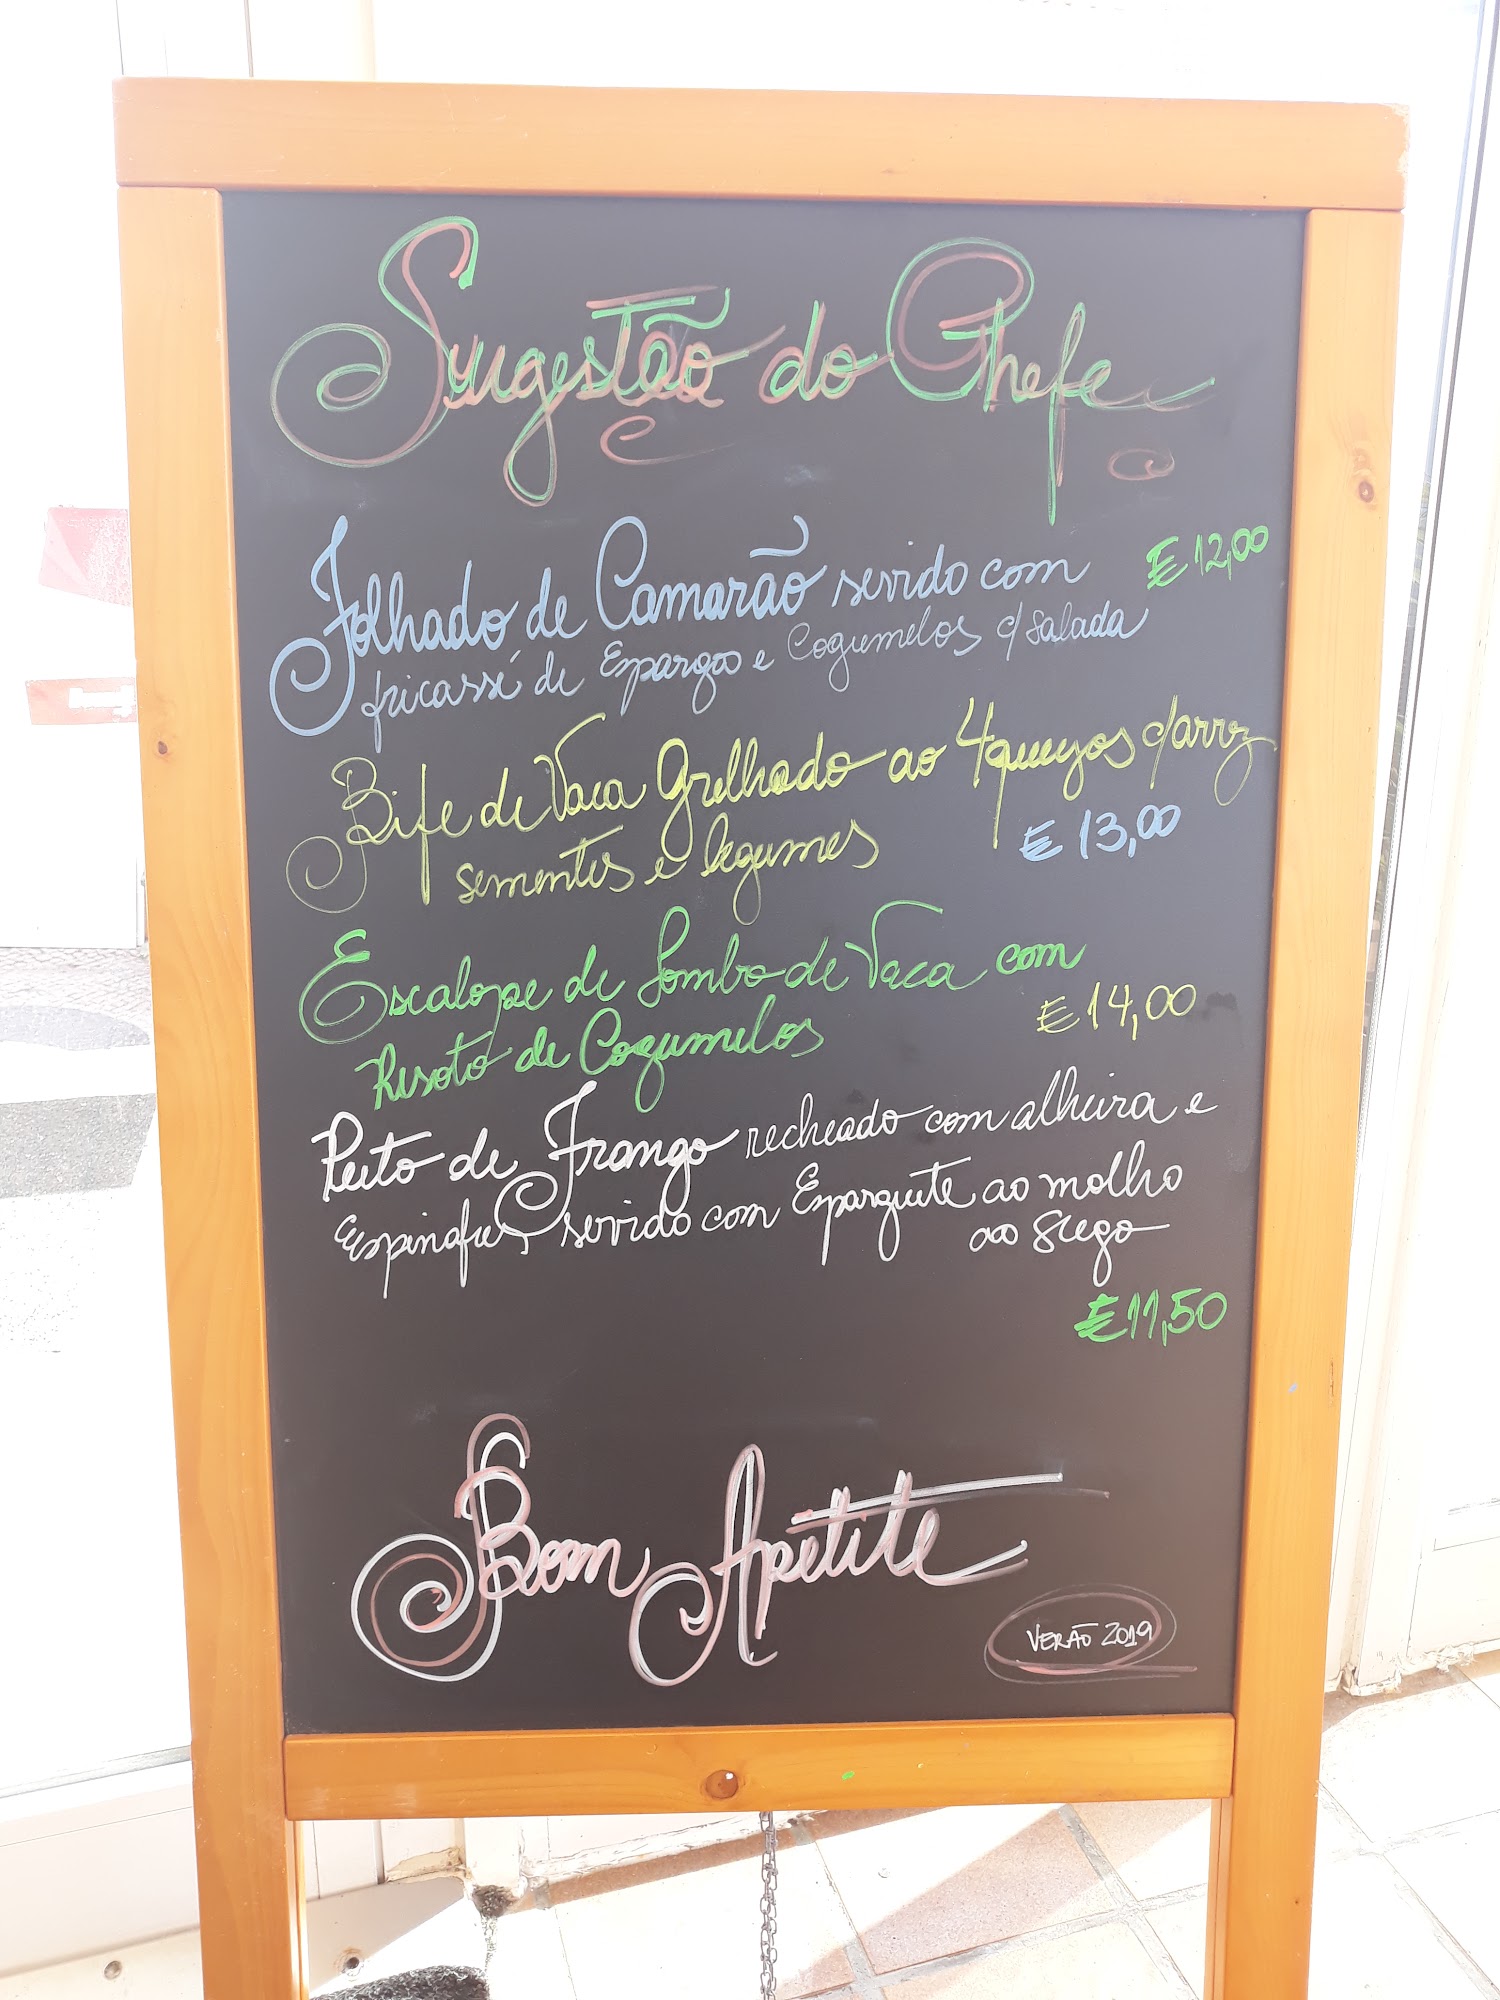 Sugestão do Chefe
Folhado de Camarão servido com € 12,00
fricassé de Espargos e Cogumelos c/ salada
Bife de Vaca Grelhado ao 4 queijos c/arroz
sementes e legumes € 13,00
Escalope de Lombo de Vaca com
Risoto de Cogumelos € 14,00
Peito de Frango recheado com alheira e
Espinafres, servido com Esparguete ao molho
ao
€11,50
Bom Apetite
VERÃO 2019